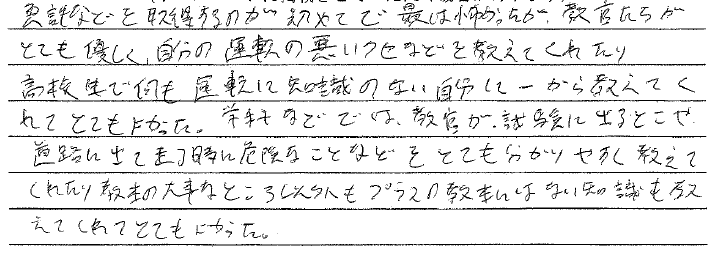 免許などを取得するのが初めてで最初は怖かったが、教官たちが
とても優しく、自分の運転の悪いクセなどを教えてくれたり
高校生で何も運転に知識のない自分に一から教えてく
れてとてもよかった。学科などでは、教官が、試験に出るとこや
道路に出て走る時に危険なことなどをとても分かりやすく教えて
くれたり教本の大事なところ以外もプラスの教本にはない知識も教
えてくれてとてもよかった。